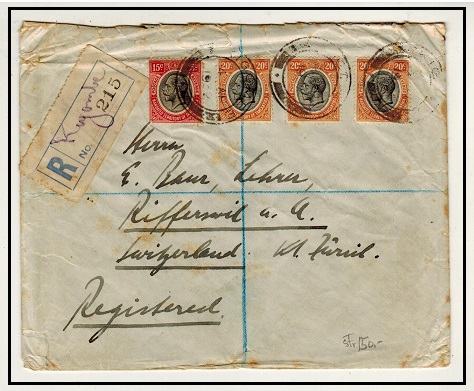 15c 20c 20c 20c 20c 20c 20c
R No. 215
Herrn
E. Baur, Lehrer,
Rifferswil a. A.
Switzerland. Kt. Zürich.
Registered.